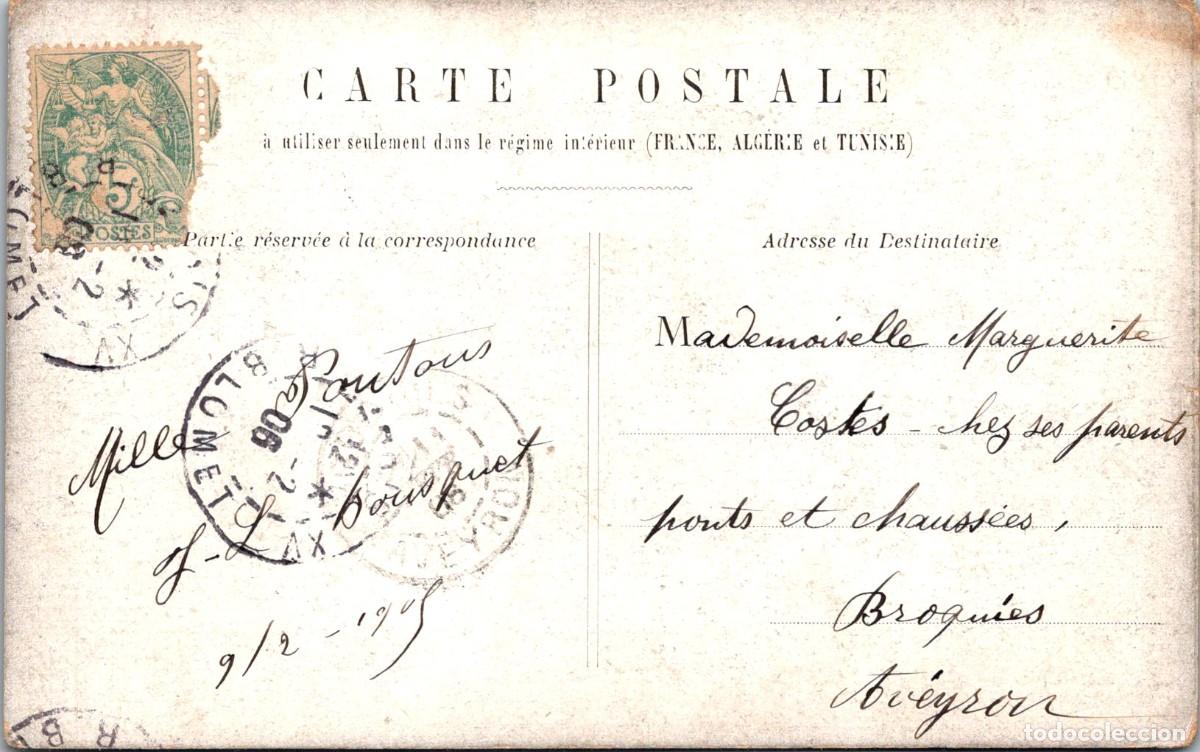 CARTE POSTALE
à utiliser seulement dans le régime intérieur (FRANCE, ALGÉRIE et TUNISIE)
Partie réservée à la correspondance
Mille
J-L Bousquet
9/2 - 1905
Adresse du Destinataire
Mademoiselle Marguerite
Costes - chez ses parents
ponts et chaussées,
Broquiès
Avéyron
5c
POSTES
BLOMET
XV
12 -2
06
AVEYRON
R B
todocoleccion